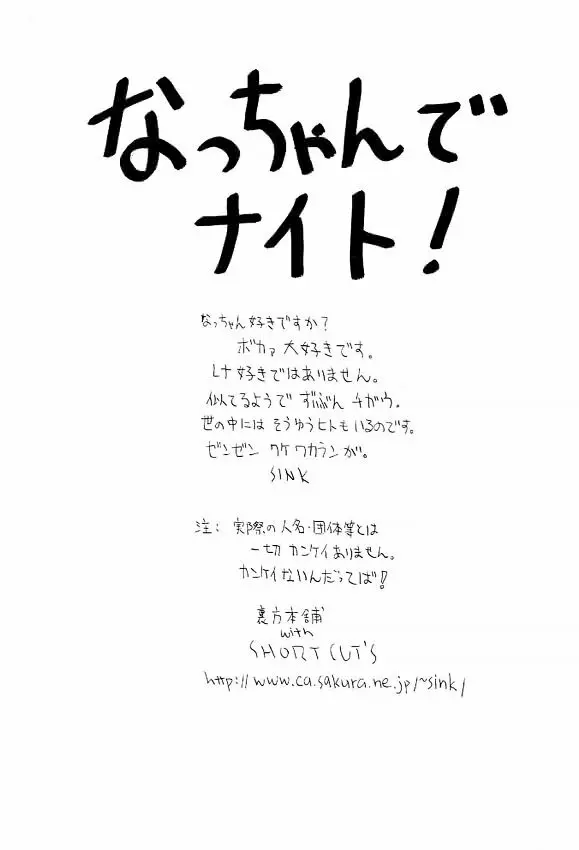 なっちゃんで
ナイト！
なっちゃん好きですか？
ボカァ 大好きです。
Lナ好きではありません。
似てるようで ずいぶん チガウ.
世の中には そうゆうヒトもいるのです。
ゼンゼン ワケワカランが。
SINK
注: 実際の人名・団体等とは
一切 カンケイありません。
カンケイないんだってば！
裏方本舗
with
SHORT CUT'S
http://www.ca.sakura.ne.jp/~sink/